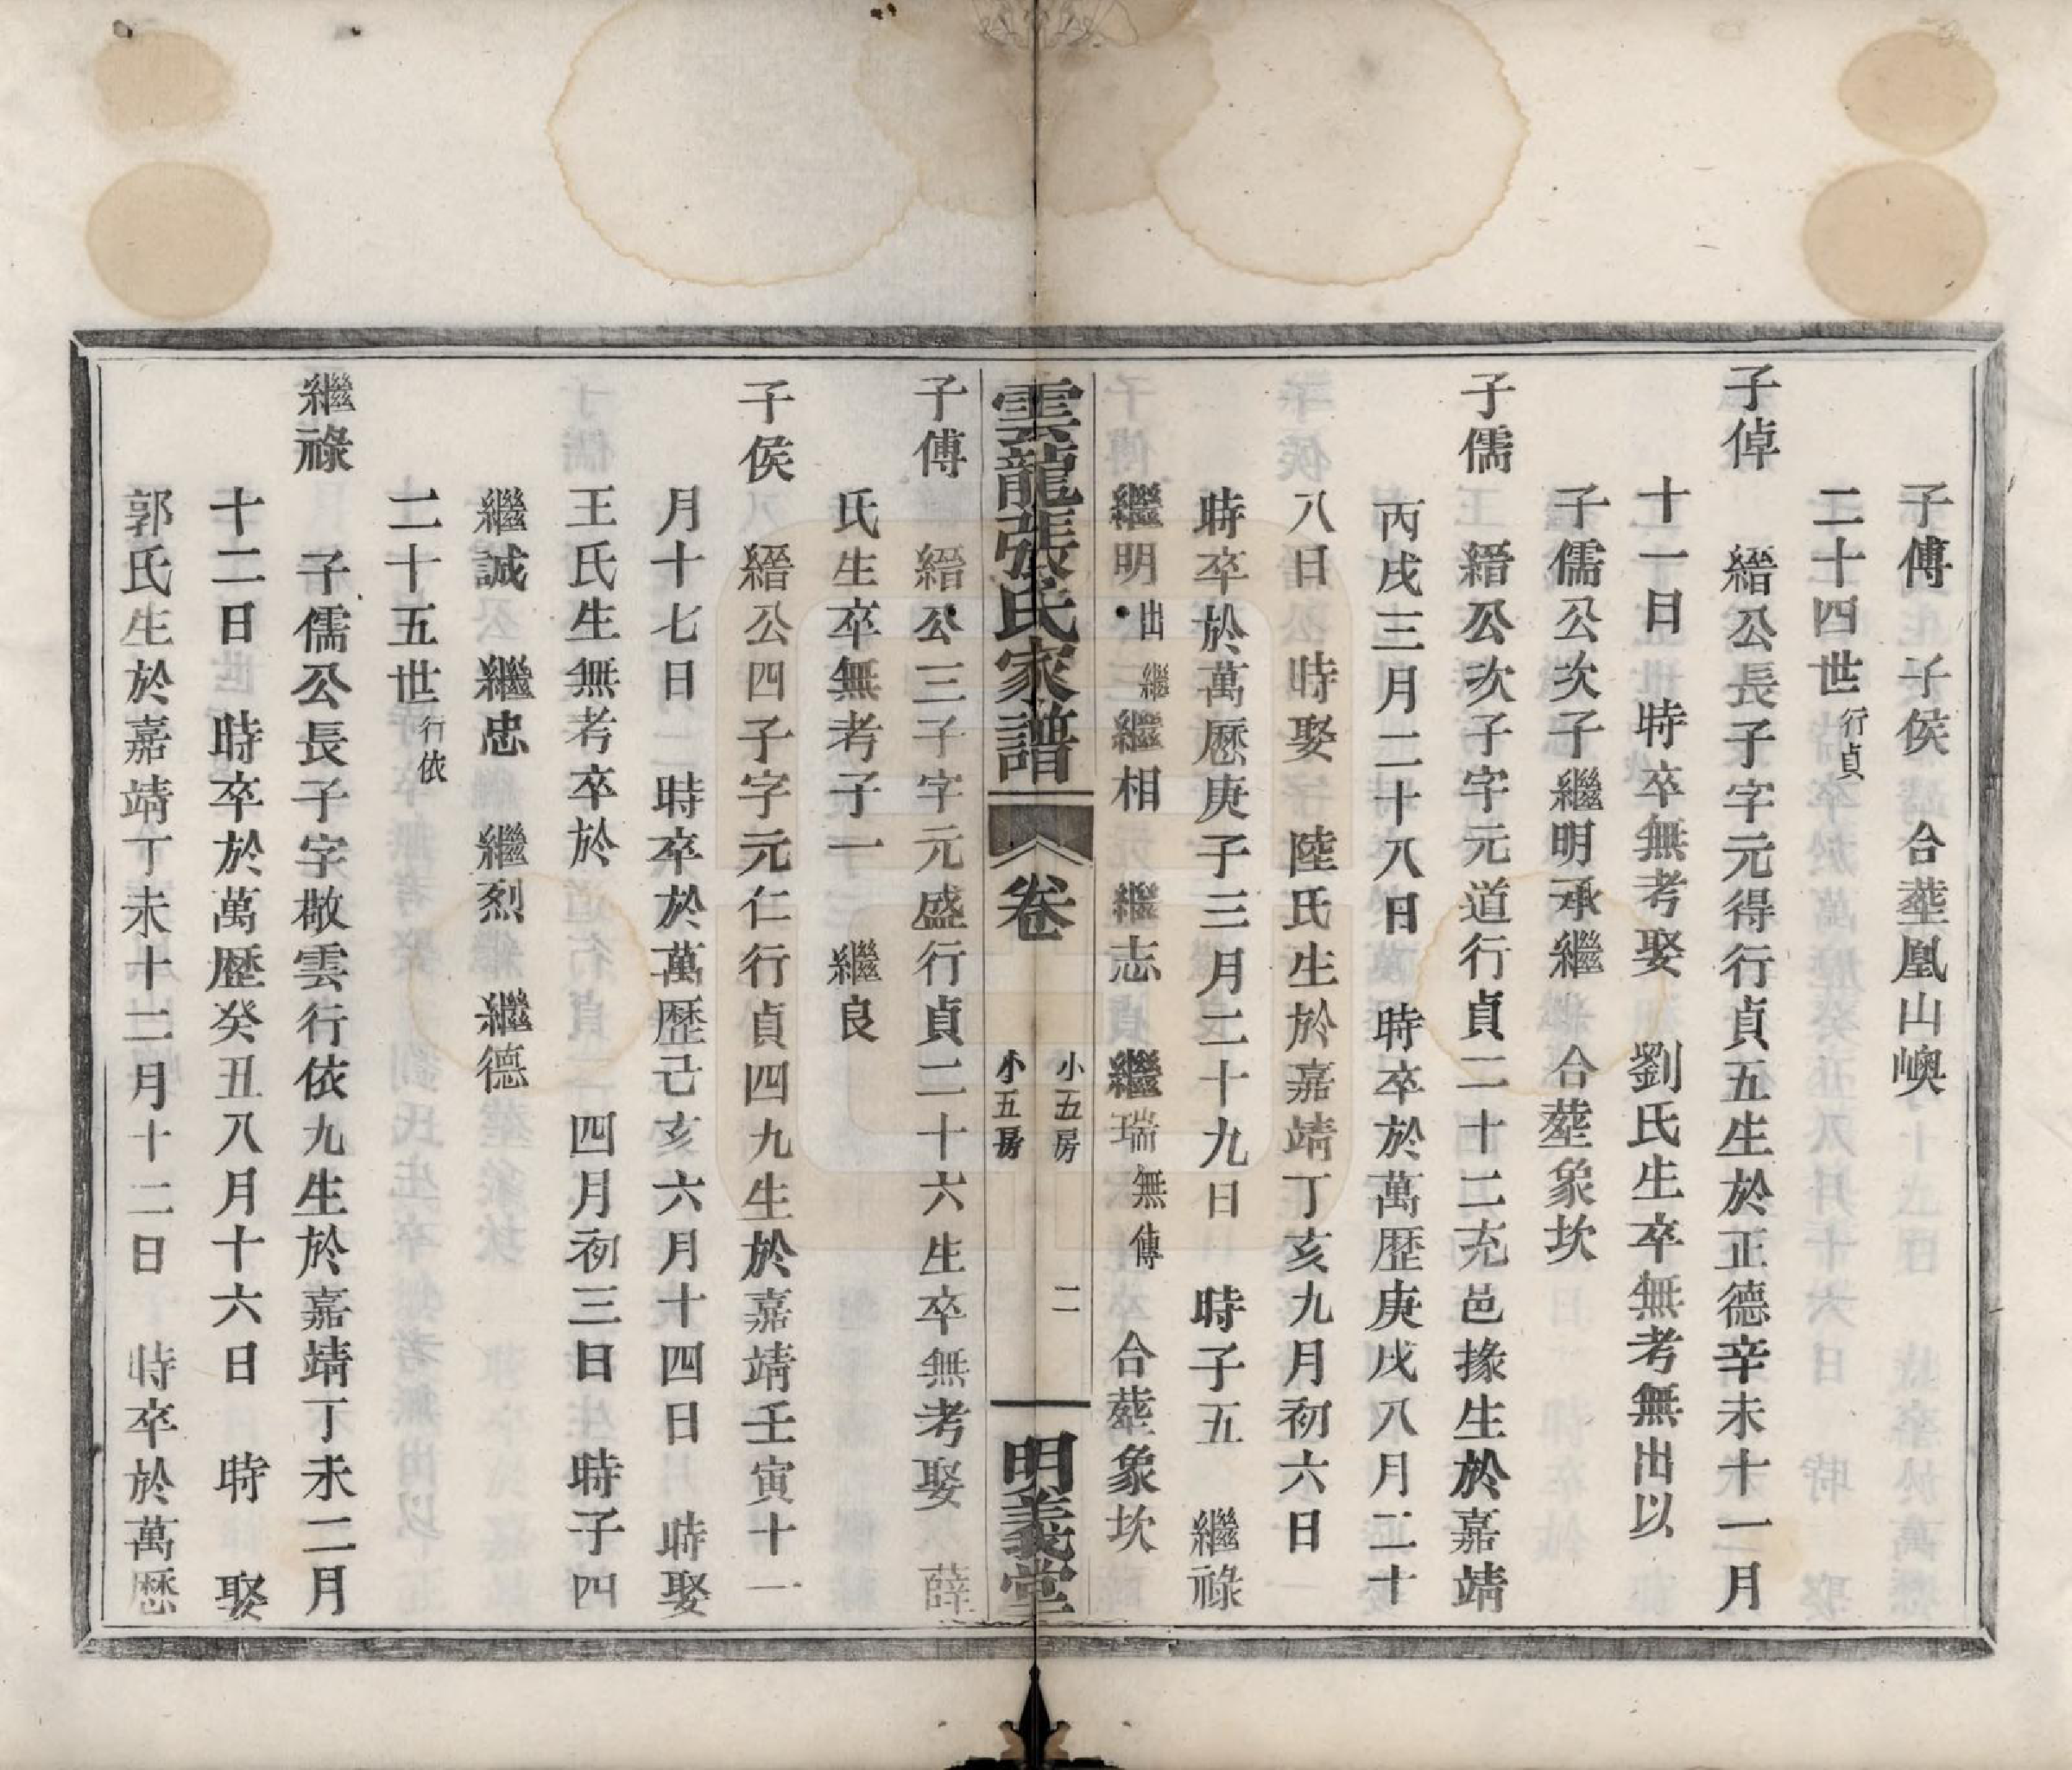 子傅　子侯　合塟凰山㠗
二十四世行貞
子倬　縉公長子字元得行貞五生於正德辛未十一月
十一日　時卒無考娶　劉氏生卒無考無出以
子儒公次子繼明承繼　合塟象坎
子儒　縉公次子字元道行貞二十二充邑掾生於嘉靖
丙戌三月二十八日　時卒於萬歴庚戌八月二十
八日　時娶　陸氏生於嘉靖丁亥九月初六日
時卒於萬歷庚子三月二十九日　時子五　繼祿
繼明出繼繼相　繼志　繼瑞無傳　合塟象坎
雲龍張氏家譜　卷　小五房　小五房　二　明義堂
子傅　縉公三子字元盛行貞二十六生卒無考娶　薛
氏生卒無考子一　繼良
子侯　縉公四子字元仁行貞四九生於嘉靖壬寅十一
月十七日　時卒於萬歷己亥六月十四日　時娶
王氏生無考卒於　四月初三日　時子四
繼誠　繼忠　繼烈　繼德
二十五世行依
繼祿　子儒公長子字敬雲行依九生於嘉靖丁未二月
十二日　時卒於萬歷癸丑八月十六日　時　娶
郭氏生於嘉靖丁未十二月十二日　時卒於萬歷